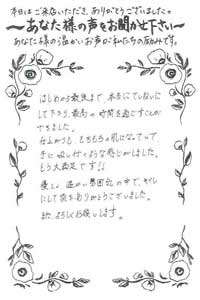 本日はご来店いただき、ありがとうございました。
～あなた様の声をお聞かせ下さい～
あなた様の温かいお声が私たちの励みです。
はじめから最後まで 本当にていねいに
して下さり、最高の時間を過ごすことが
できました。
仕上がりも もちもちの肌になっていて、
手に吸い付くような感じがしました。
もう大満足です!!
優しい 温かい雰囲気の中で、キレイ
にして頂きありがとうございました。
また よろしくお願いします。